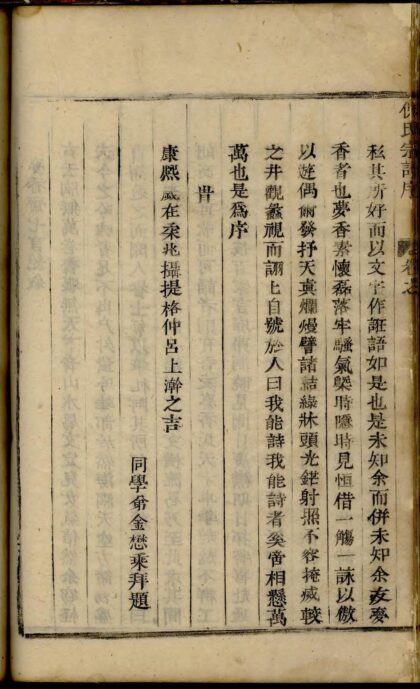 私其所好而以文字作誑語如是也是未知余而併未知余友夢
香者也夢香素懷磊落牢騷氣槩時隱時見恒借一觴一詠以傲
以遊偶爾發抒天真爛熳譬諸結綠牀頭光鋩射照不容掩滅較
之井觀蠡視而詡上自號於人曰我能詩我能詩者奚啻相懸萬
萬也是為序
旹
康熙歲在柔兆攝提格仲呂上澣之吉
同學弟金懋乘拜題
氏宗譜序
卷之